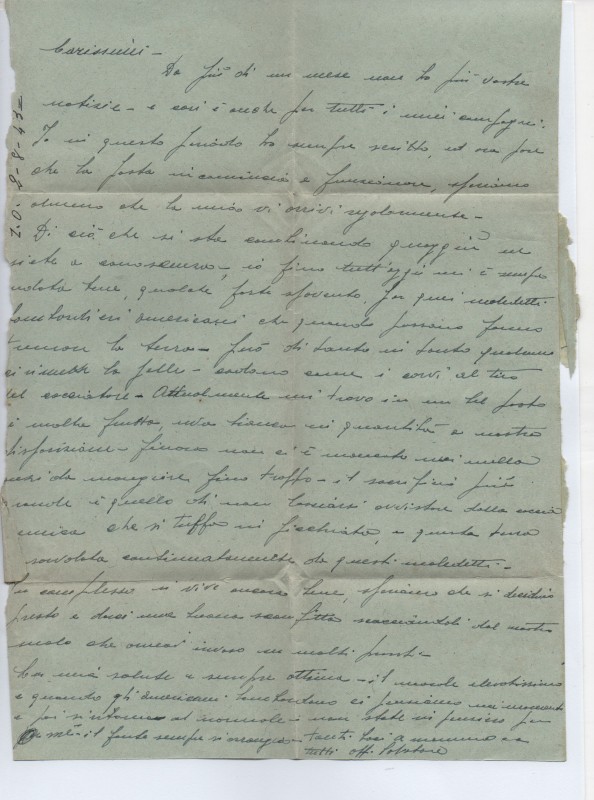 Z.O. 9-8-43=
Carissimi -
Da più di un mese non ho più vostre
notizie - e così è anche per tutti i miei compagni.
Io in questo periodo ho sempre scritto, ed ora pare
che la posta incominci a funzionare, speriamo
almeno che la mia vi arrivi regolarmente -
Di ciò che si sta combinando quaggiù ne
siete a conoscenza - io fino tutt'oggi mi è sempre
andata bene, qualche forte spavento, per quei maledetti
bombardieri americani che quando passano fanno
tremar la terra - però di tanto in tanto qualcuno
ci rimette la pelle - cadono come i corvi al tiro
del cacciatore - Attualmente mi trovo in un bel posto
è molta frutta, uva bianca in quantità a nostra
disposizione - finora non ci è mancato mai nulla
anzi da mangiare fino troppo - il sacrificio più
grande è quello di non lasciarsi avvistare dalla caccia
nemica che si tuffa in picchiata, e questa zona
sorvolata continuatamente da questi maledetti -
In complesso si vive ancora bene, speriamo che si decidino
presto a darci una buona sconfitta scacciandoli dal nostro
suolo che ormai invaso in molti punti -
La mia salute è sempre ottima - il morale elevatissimo
e quando gli americani bombardano ci pensiamo un momento
e poi si ritorna al normale - non state in pensiero per
me - il fante sempre si arrangia - tanti baci a mamma e a
tutti aff. Salvatore